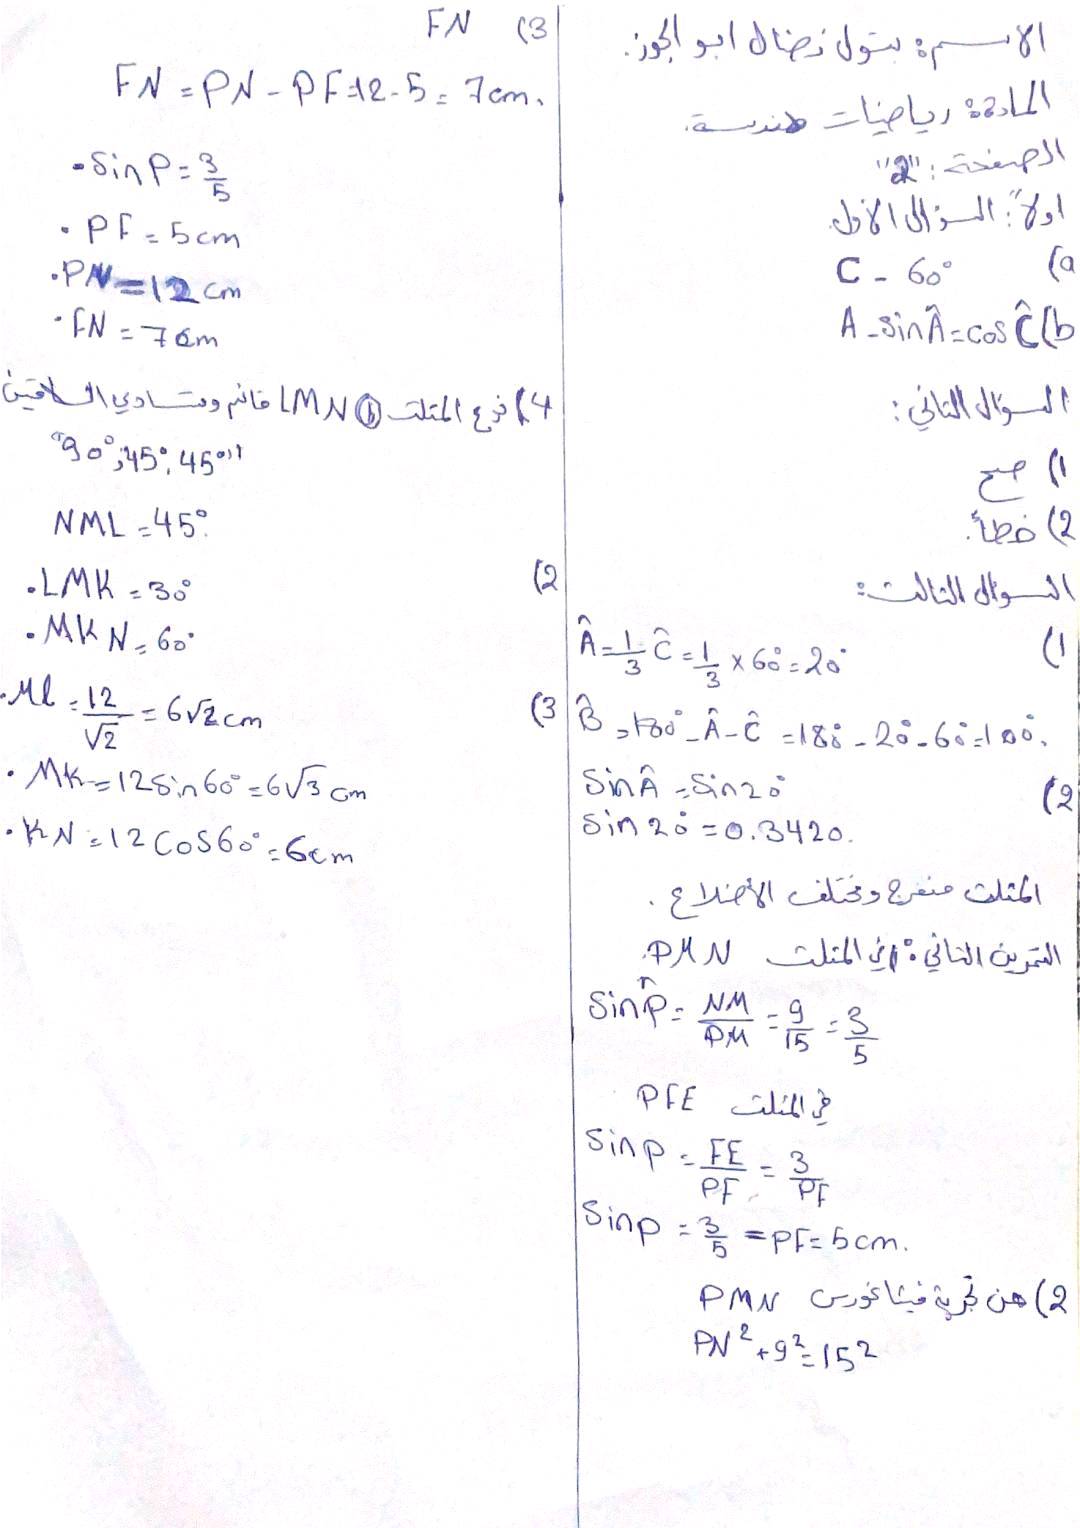 الاسم: بتول نضال ابو الجوز.
المادة: رياضيات هندسة.
الصفحة: "2"
اولاً: السؤال الأول.
a) C - 60°
b) A - sin Â = cos Ĉ
السؤال الثاني:
1) صح
2) خطأ.
السؤال الثالث:
1)
Â = 1/3 Ĉ = 1/3 × 60° = 20°
B̂ = 180° - Â - Ĉ = 180° - 20° - 60° = 100°.
2) Sin Â = Sin 20°
Sin 20° = 0.3420.
المثلث منفرج ومختلف الأضلاع.
التمرين الثاني: 1) في المثلث PMN
Sin P̂ = NM/PM = 9/15 = 3/5
في المثلث PFE
Sin P = FE/PF = 3/PF
Sin P = 3/5 = PF = 5cm.
2) من فيثاغورس PMN
PN² + 9² = 15²
3) FN
FN = PN - PF = 12 - 5 = 7cm.
• Sin P = 3/5
• PF = 5cm
• PN = 12 cm
• FN = 7cm
4) نوع المثلث LMN قائم ومتساوي الساقين
"90°, 45°, 45°"
NML = 45°.
2) • LMK = 30°
• MKN = 60°
3) • ML = 12/√2 = 6√2 cm
• MK = 12 Sin 60° = 6√3 cm
• KN = 12 Cos 60° = 6cm